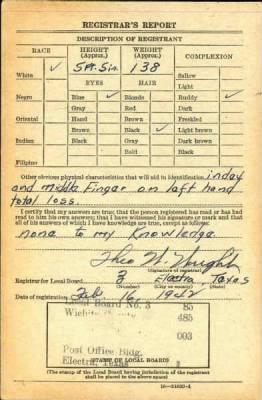 REGISTRAR'S REPORT
DESCRIPTION OF REGISTRANT
RACE
HEIGHT
(Approx.)
WEIGHT
(Approx.)
COMPLEXION
White ✓
5 Ft. 5 in.
138
Sallow
EYES
HAIR
Light
Negro
Blue ✓
Blonde
Ruddy ✓
Gray
Red
Dark
Oriental
Hand
Brown
Freckled
Brown
Black ✓
Light brown
Indian
Black
Gray
Dark brown
Bald
Black
Filipino
Other obvious physical characteristics that will aid in identification index
and middle Fingar on laft hand
total loss.
I certify that my answers are true; that the person registered has read or has had
read to him his own answers; that I have witnessed his signature or mark and that
all of his answers of which I have knowledge are true, except as follows:
none to my Knowledge
Theo W.
(Signature of registrar)
Registrar for Local Board 3 Electra, Texas
(Number) (City or county) (State)
Date of registration Feb 16, 1942
Local Board No. 3 85
Wichita 485
003
Post Office Bldg.
Electra, Texas
(STAMP OF LOCAL BOARD)
(The stamp of the Local Board having jurisdiction of the registrant
shall be placed in the above space)